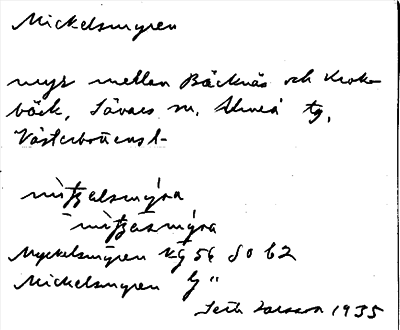 Mickelsmyren
myr mellan Bäcknäs och Krok-
bäck, Sävars sn, Umeå tg,
Västerbottens l.
Myckelsmyren kg 56 80 62
Mickelsmyren G "
Seth Larsson 1935